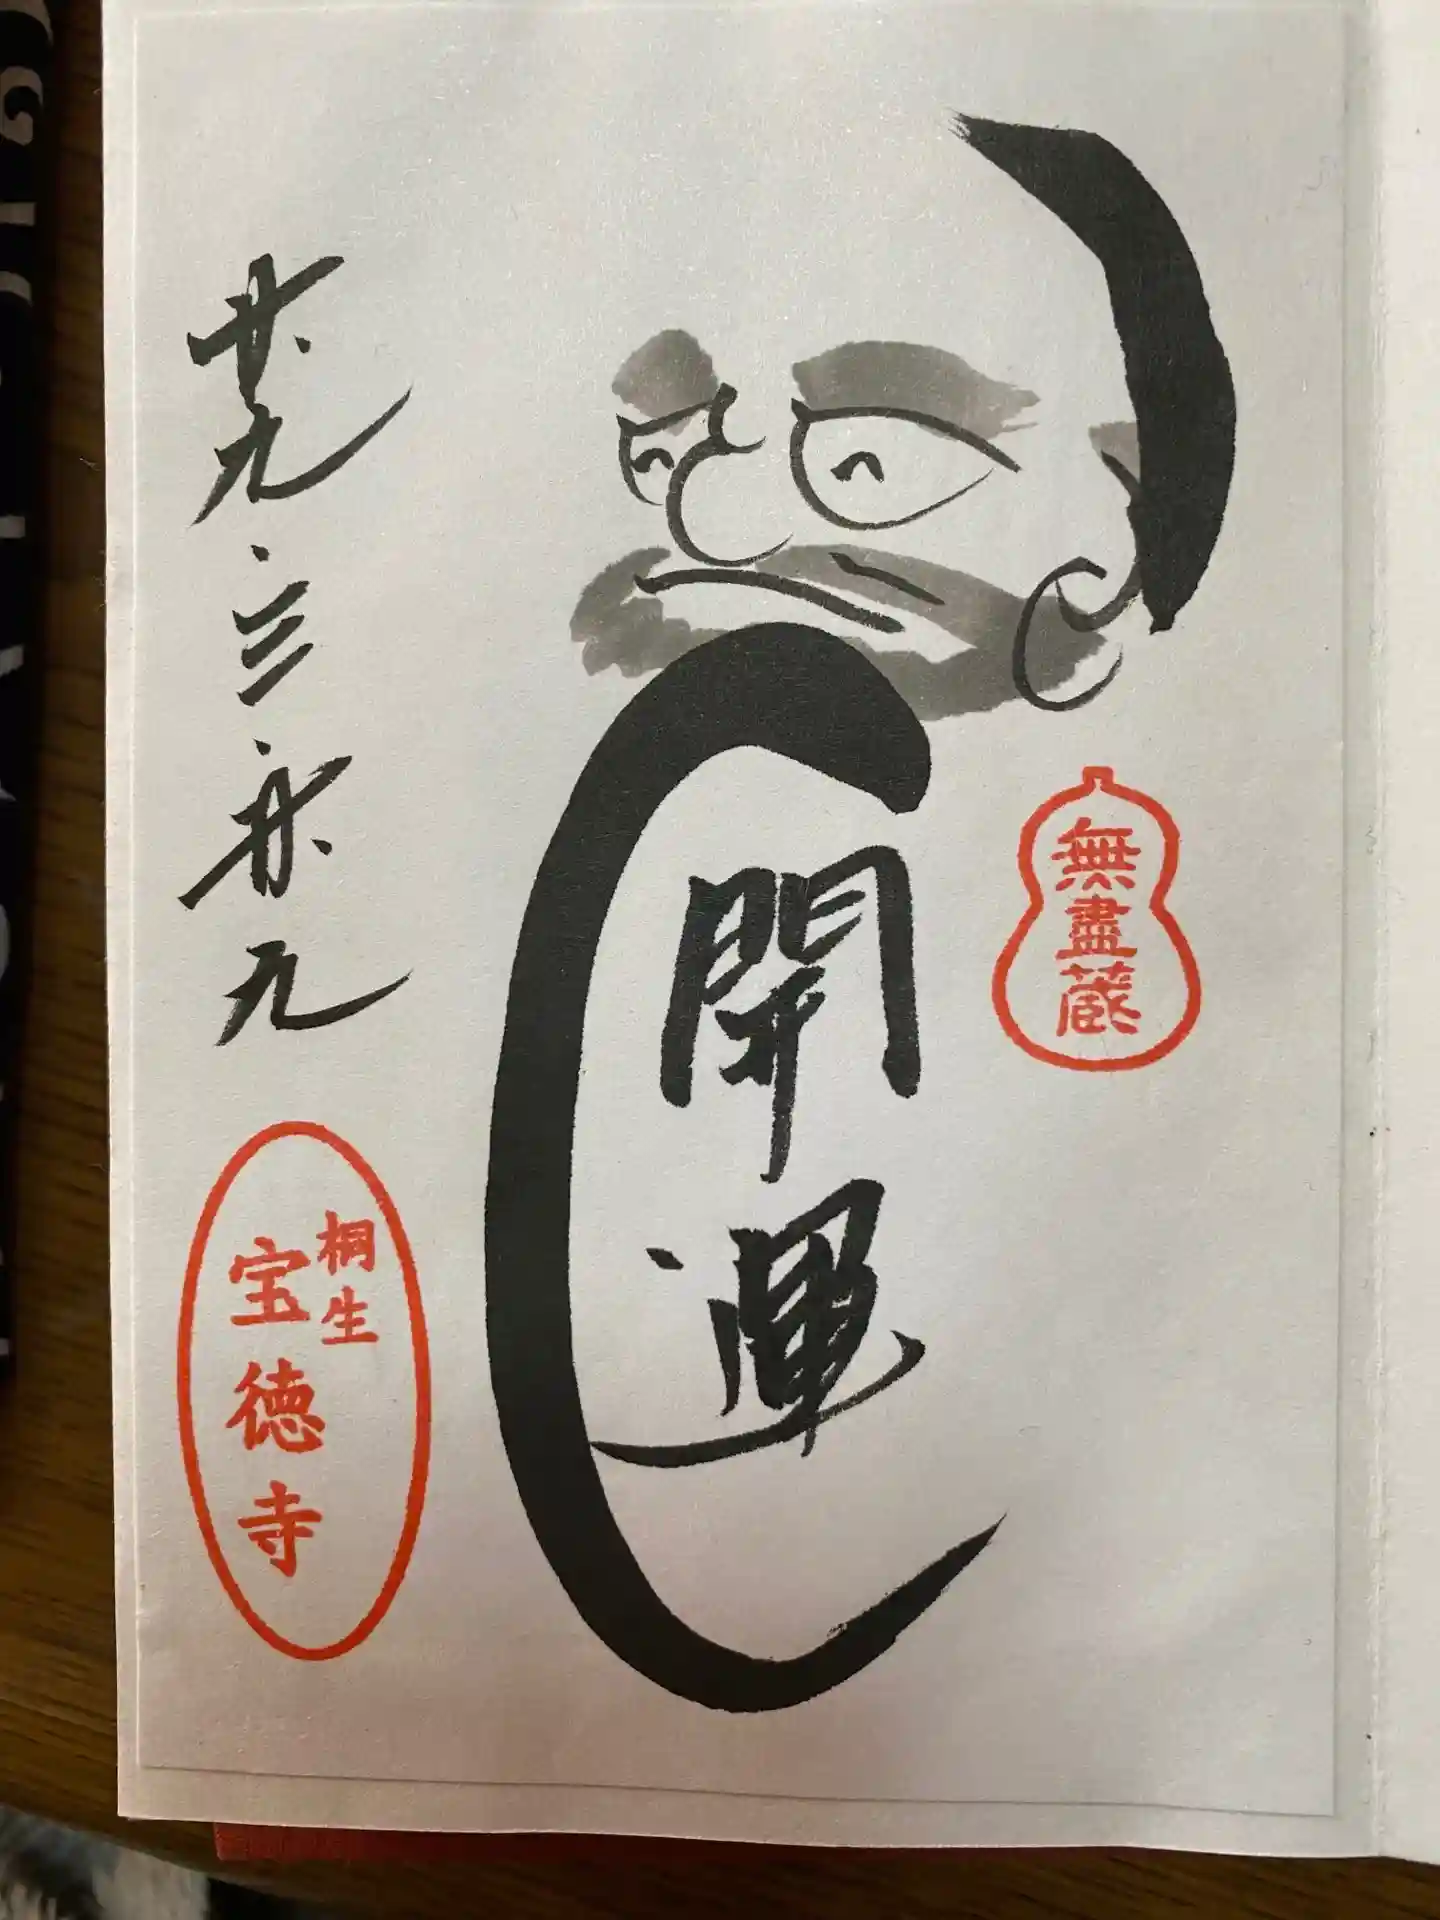 無盡蔵
開運
廿九・三・廿九
桐生
宝徳寺